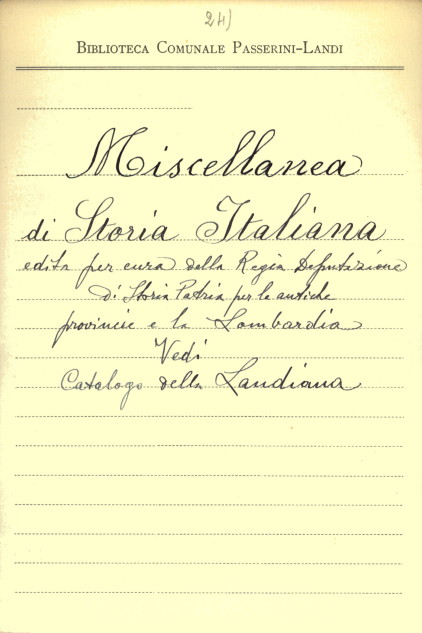 24)
Biblioteca Comunale Passerini-Landi
Miscellanea
di Storia Italiana
edita per cura della Regia Deputazione
di Storia Patria per le antiche
provincie e la Lombardia
Vedi
Catalogo della Landiana